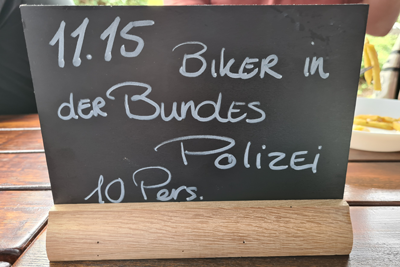 11.15 Biker in
der Bundes
Polizei
10 Pers.